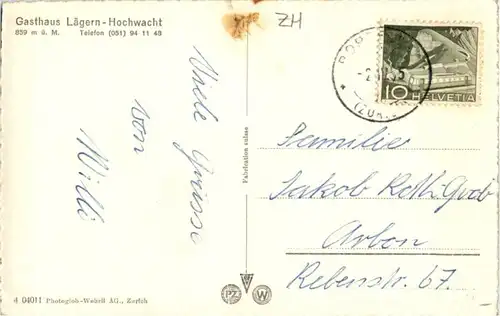 Gasthaus Lägern-Hochwacht
859 m ü. M. Telefon (051) 94 11 48
ZH
Viele Grüsse
von
Willi
Fabrikation suisse
10 HELVETIA
Familie
Jakob Roth-Grob
Arbon
Rebenstr. 67.
4 04011 Photoglob-Wehrli AG., Zürich
PZ W